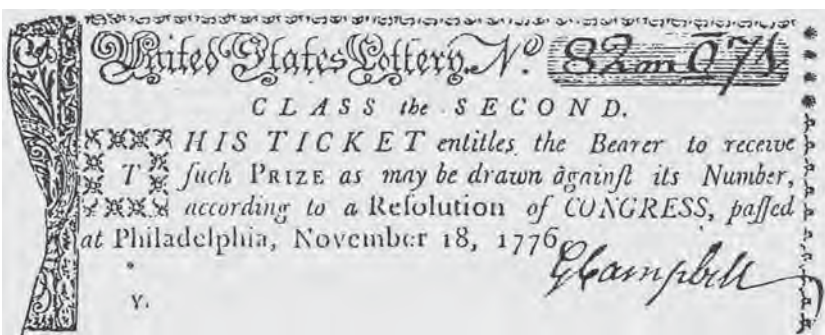 United States Lottery. No.
CLASS the SECOND.
THIS TICKET entitles the Bearer to receive
ſuch PRIZE as may be drawn againſt its Number,
according to a Reſolution of CONGRESS, paſſed
at Philadelphia, November 18, 1776.
GCampbell
Y.